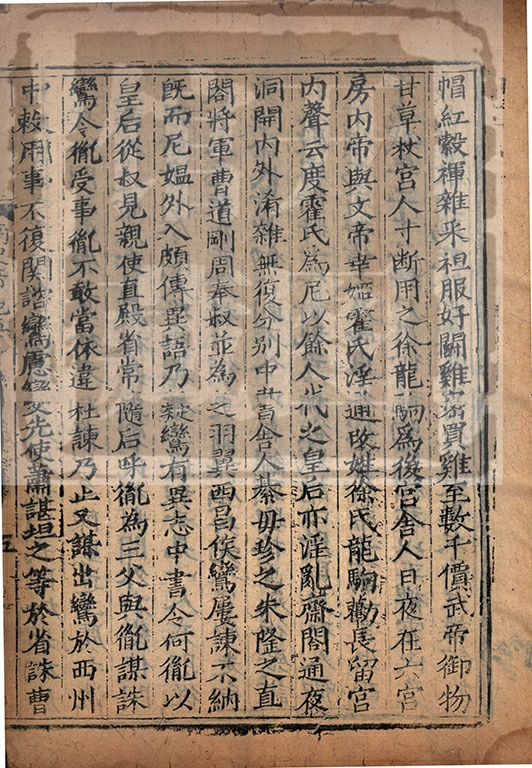 帽紅縠褌雜采袒服好鬪雞密買雞至數千價武帝御物
甘草杖宮人寸斷用之徐龍駒爲後宮舎人日夜在六宮
房内帝與文帝幸姬霍氏淫通改姓徐氏龍駒勸長留宮
内聲云度霍氏爲尼以餘人代之皇后亦淫亂齋閤通夜
洞開内外淆雜無復分别中書舎人綦毋珍之朱隆之直
閤將軍曹道剛周奉叔並為之羽翼西昌侯鸞屢諫不納
旣而尼媼外入頗傳異語乃疑鸞有異志中書令何胤以
皇后從叔見親使直殿省常隨后呼胤為三父與胤謀誅
鸞令胤受事胤不敢當依違杜諫乃止又謀出鸞於西州
中敕用事不復關諮鸞慮變先使蕭諶坦之等於省誅曹